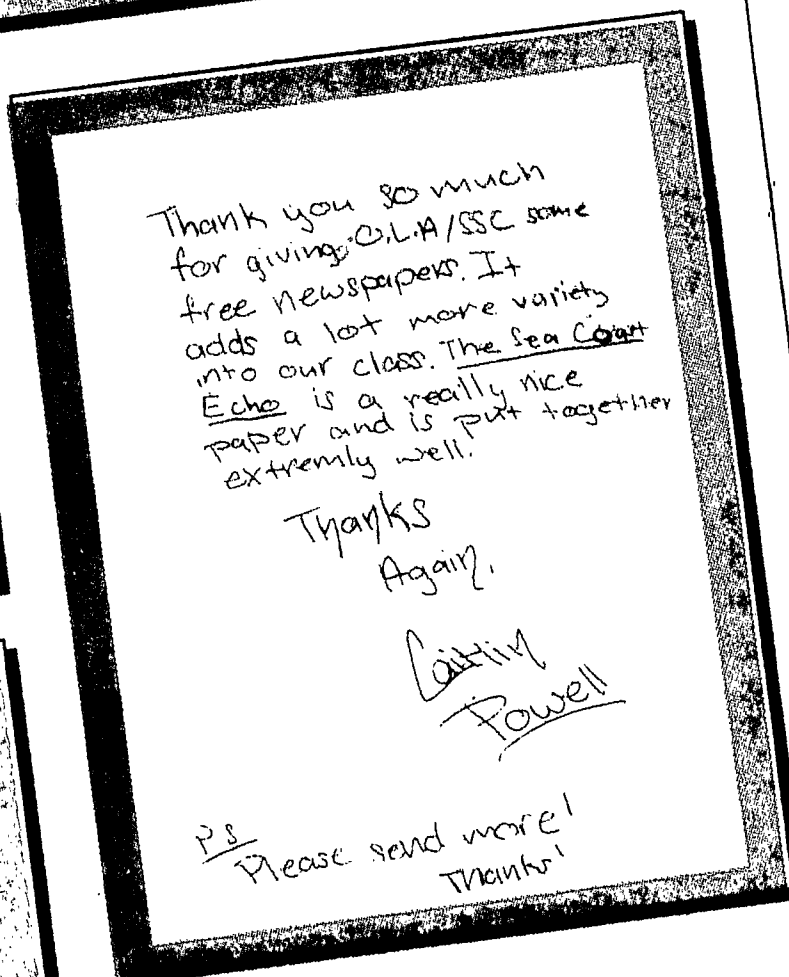 Thank you so much
for giving O.L.A/SSC some
free newspapers. It
adds a lot more variety
into our class. The Sea Coast
Echo is a really nice
paper and is put together
extremly well.
Thanks
Again,
Caitlin
Powell
PS
Please send more!
Thanks!